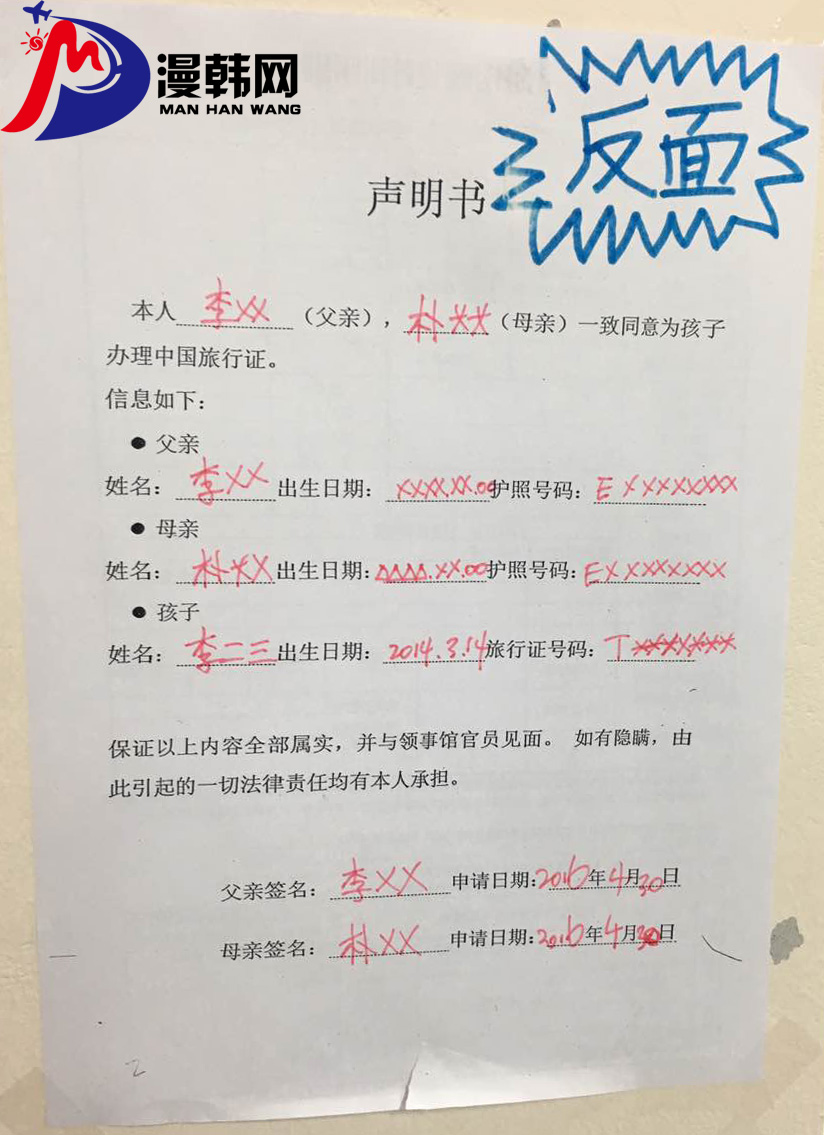 漫韩网
MAN HAN WANG
反面
声明书
本人 李XX （父亲），朴XX（母亲）一致同意为孩子
办理中国旅行证。
信息如下：
● 父亲
姓名： 李XX 出生日期： XXXX.XX.00 护照号码： EXXXXXXXX
● 母亲
姓名： 朴XX 出生日期：△△△△.XX.00 护照号码：EXXXXXXXX
● 孩子
姓名： 李二三 出生日期： 2014.3.14 旅行证号码： TXXXXXXX
保证以上内容全部属实，并与领事馆官员见面。 如有隐瞒，由
此引起的一切法律责任均有本人承担。
父亲签名： 李XX 申请日期：2016年4月30日
母亲签名： 朴XX 申请日期：2016年4月30日
2